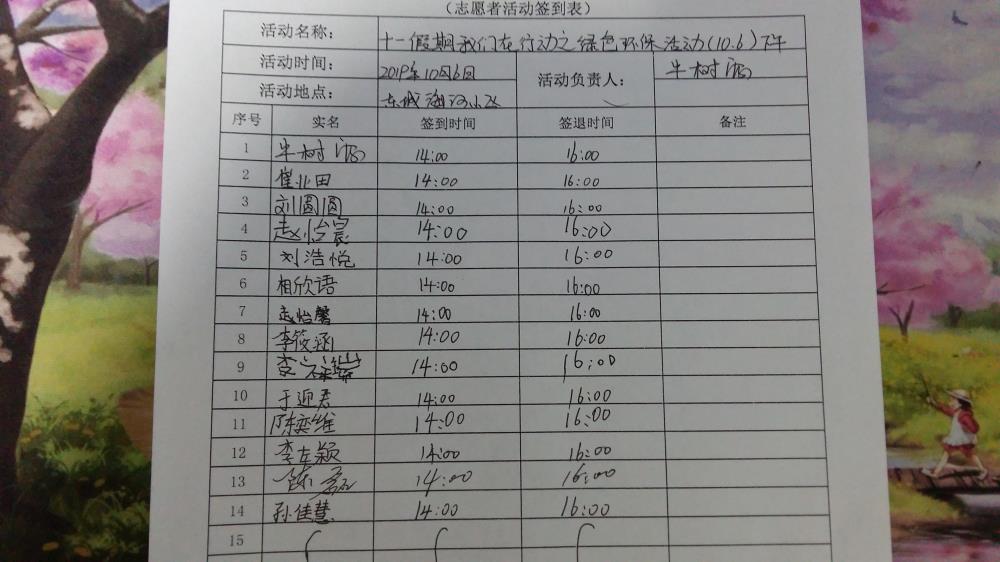 （志愿者活动签到表）
活动名称： 十一假期我们在行动之绿色环保活动(10.6)下午
活动时间： 2019年10月6日 活动负责人： 牛树
活动地点： 东城
序号 实名 签到时间 签退时间 备注
1 牛树 14:00 16:00
2 崔业田 14:00 16:00
3 刘圆圆 14:00 16:00
4 赵怡宸 14:00 16:00
5 刘浩悦 14:00 16:00
6 相欣语 14:00 16:00
7 孟怡馨 14:00 16:00
8 李筱涵 14:00 16:00
9 14:00 16:00
10 于迎君 14:00 16:00
11 陈奕维 14:00 16:00
12 李左颖 14:00 16:00
13 陈 14:00 16:00
14 孙佳慧 14:00 16:00
15